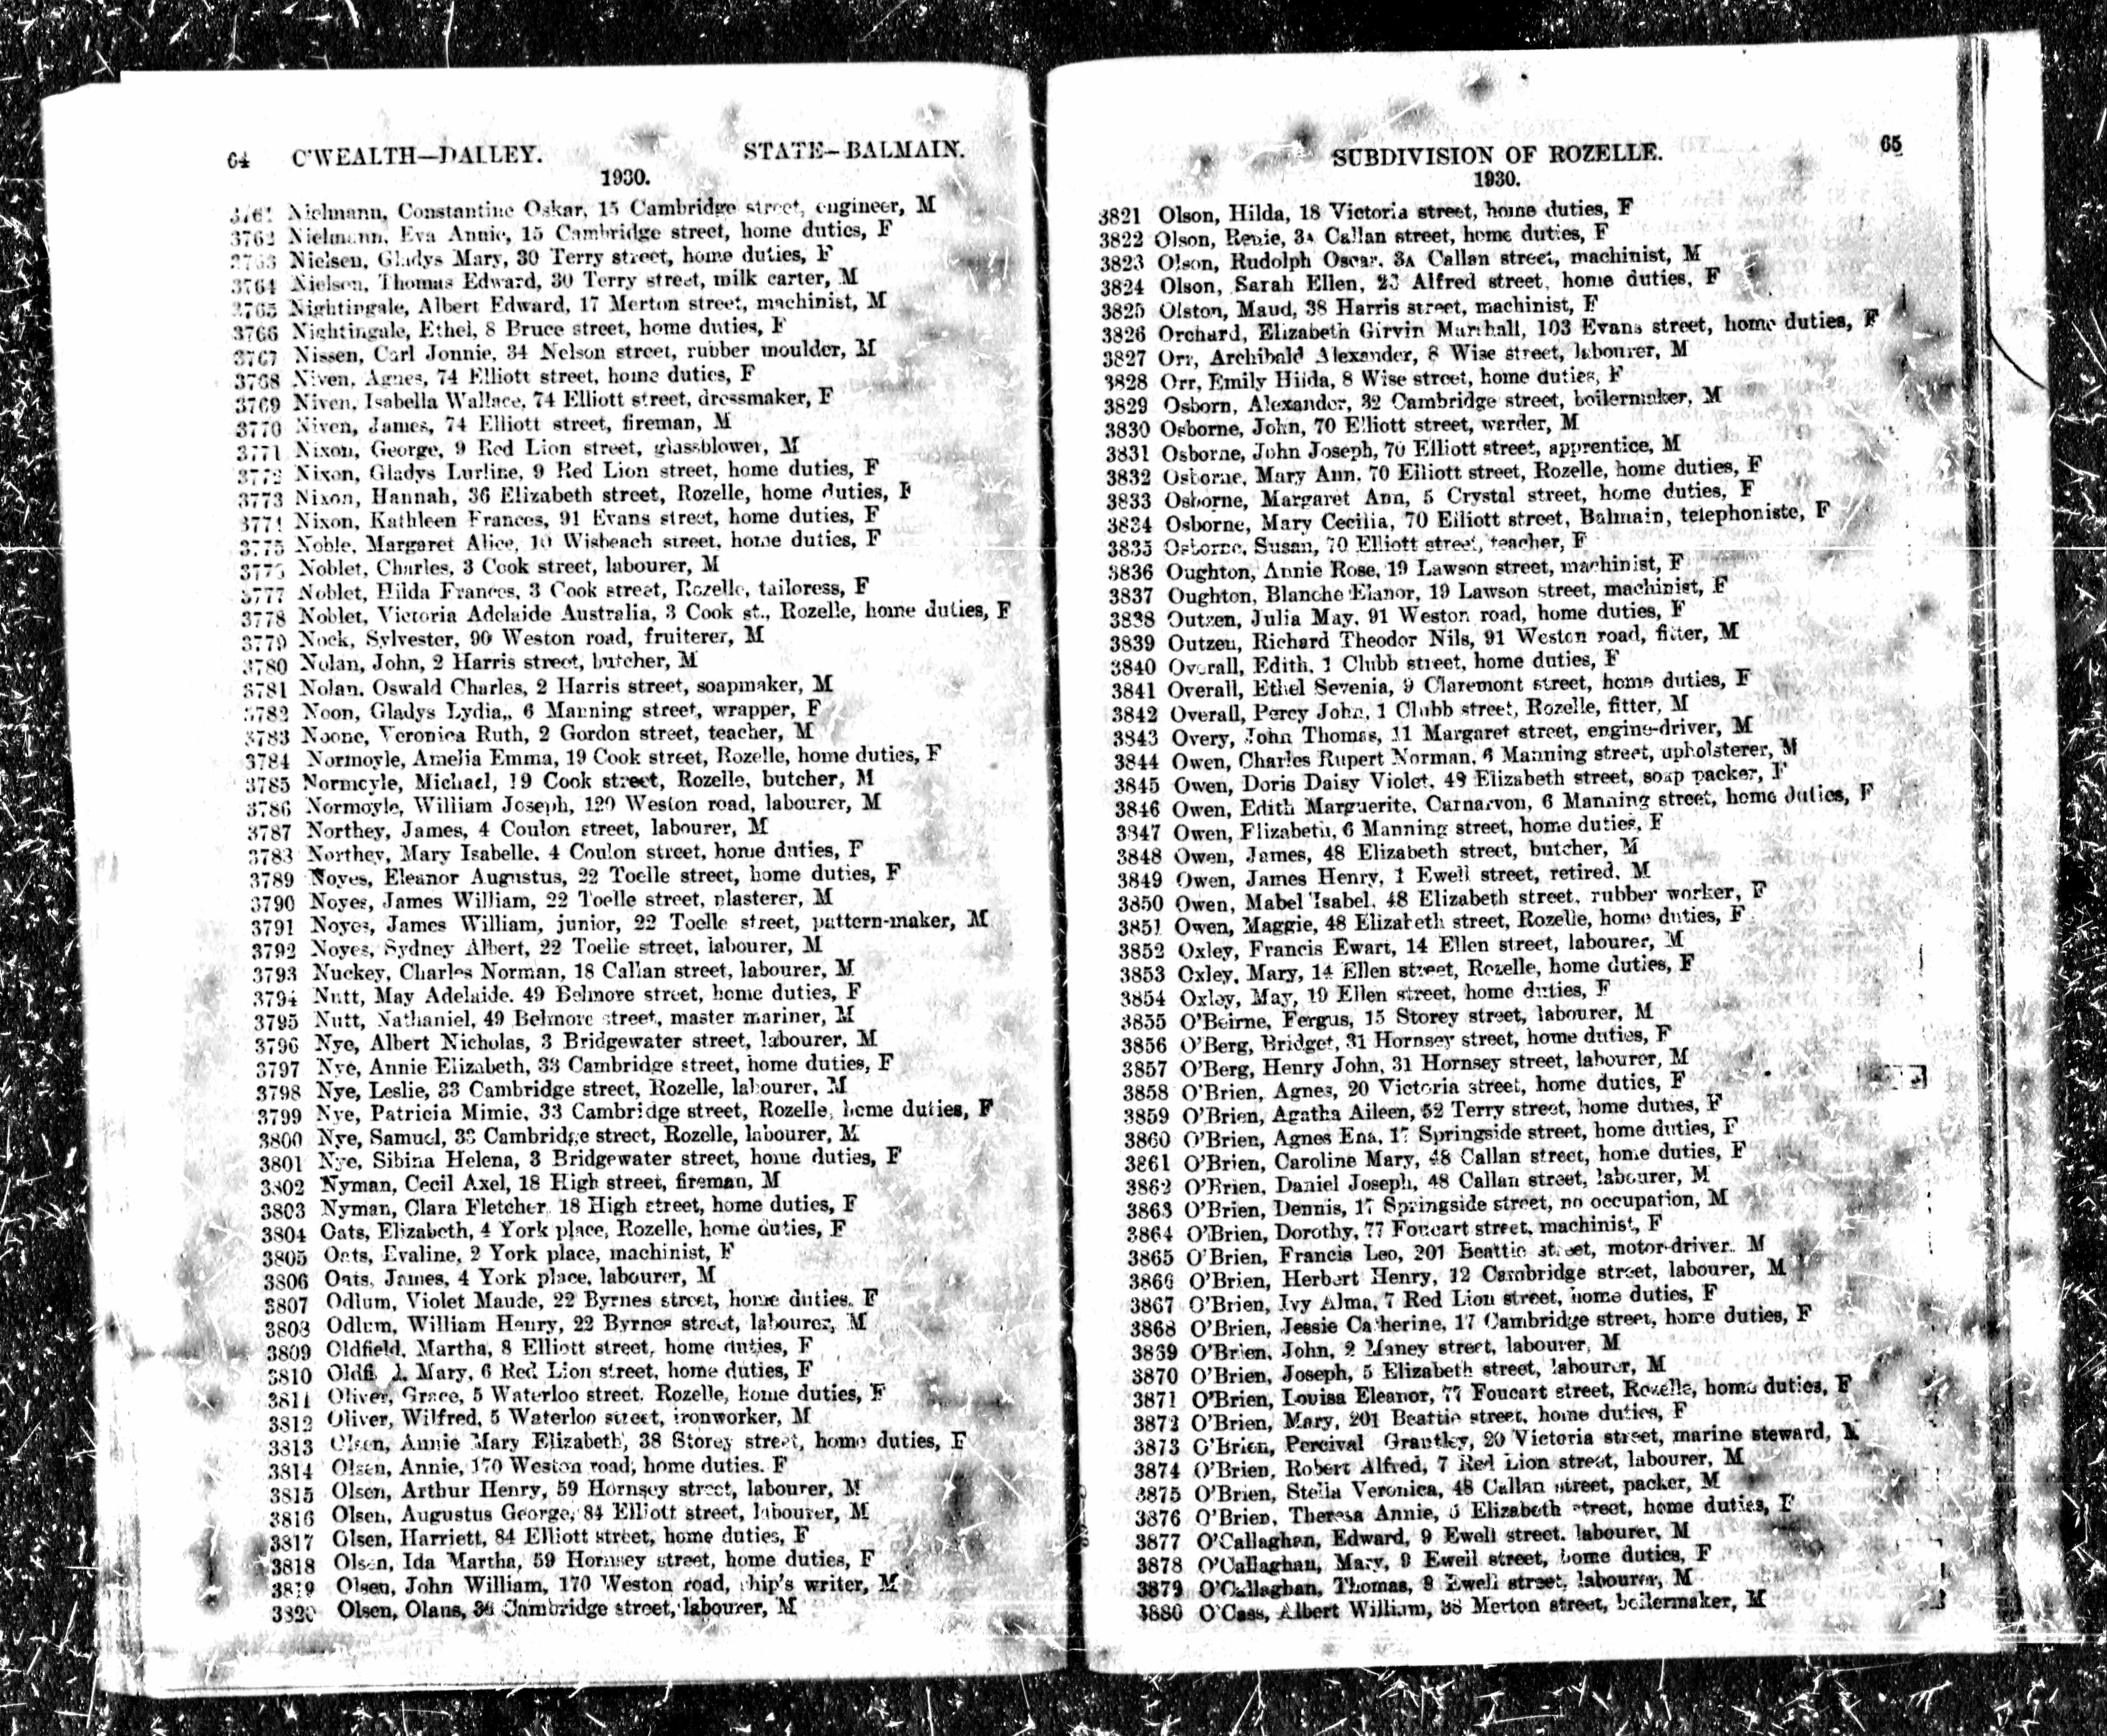 64 C'WEALTH—DALLEY. STATE—BALMAIN.
1930.
3761 Nielmann, Constantine Oskar, 15 Cambridge street, engineer, M
3762 Nielmann, Eva Annie, 15 Cambridge street, home duties, F
3763 Nielsen, Gladys Mary, 30 Terry street, home duties, F
3764 Nielsen, Thomas Edward, 30 Terry street, milk carter, M
3765 Nightingale, Albert Edward, 17 Merton street, machinist, M
3766 Nightingale, Ethel, 8 Bruce street, home duties, F
3767 Nissen, Carl Jonnie, 34 Nelson street, rubber moulder, M
3768 Niven, Agnes, 74 Elliott street, home duties, F
3769 Niven, Isabella Wallace, 74 Elliott street, dressmaker, F
3770 Niven, James, 74 Elliott street, fireman, M
3771 Nixon, George, 9 Red Lion street, glassblower, M
3772 Nixon, Gladys Lurline, 9 Red Lion street, home duties, F
3773 Nixon, Hannah, 36 Elizabeth street, Rozelle, home duties, F
3774 Nixon, Kathleen Frances, 91 Evans street, home duties, F
3775 Noble, Margaret Alice, 10 Wisbeach street, home duties, F
3776 Noblet, Charles, 3 Cook street, labourer, M
3777 Noblet, Hilda Frances, 3 Cook street, Rozelle, tailoress, F
3778 Noblet, Victoria Adelaide Australia, 3 Cook st., Rozelle, home duties, F
3779 Nock, Sylvester, 90 Weston road, fruiterer, M
3780 Nolan, John, 2 Harris street, butcher, M
3781 Nolan, Oswald Charles, 2 Harris street, soapmaker, M
3782 Noon, Gladys Lydia,, 6 Manning street, wrapper, F
3783 Noone, Veronica Ruth, 2 Gordon street, teacher, M
3784 Normoyle, Amelia Emma, 19 Cook street, Rozelle, home duties, F
3785 Normoyle, Michael, 19 Cook street, Rozelle, butcher, M
3786 Normoyle, William Joseph, 129 Weston road, labourer, M
3787 Northey, James, 4 Coulon street, labourer, M
3788 Northey, Mary Isabelle, 4 Coulon street, home duties, F
3789 Noyes, Eleanor Augustus, 22 Toelle street, home duties, F
3790 Noyes, James William, 22 Toelle street, plasterer, M
3791 Noyes, James William, junior, 22 Toelle street, pattern-maker, M
3792 Noyes, Sydney Albert, 22 Toelle street, labourer, M
3793 Nuckey, Charles Norman, 18 Callan street, labourer, M
3794 Nutt, May Adelaide, 49 Belmore street, home duties, F
3795 Nutt, Nathaniel, 49 Belmore street, master mariner, M
3796 Nye, Albert Nicholas, 3 Bridgewater street, labourer, M
3797 Nye, Annie Elizabeth, 33 Cambridge street, home duties, F
3798 Nye, Leslie, 33 Cambridge street, Rozelle, labourer, M
3799 Nye, Patricia Mimie, 33 Cambridge street, Rozelle, home duties, F
3800 Nye, Samuel, 33 Cambridge street, Rozelle, labourer, M
3801 Nye, Sibina Helena, 3 Bridgewater street, home duties, F
3802 Nyman, Cecil Axel, 18 High street, fireman, M
3803 Nyman, Clara Fletcher, 18 High street, home duties, F
3804 Oats, Elizabeth, 4 York place, Rozelle, home duties, F
3805 Oats, Evaline, 2 York place, machinist, F
3806 Oats, James, 4 York place, labourer, M
3807 Odlum, Violet Maude, 22 Byrnes street, home duties, F
3808 Odlum, William Henry, 22 Byrnes street, labourer, M
3809 Oldfield, Martha, 8 Elliott street, home duties, F
3810 Mary, 6 Red Lion street, home duties, F
3811 Oliver, Grace, 5 Waterloo street, Rozelle, home duties, F
3812 Oliver, Wilfred, 5 Waterloo street, ironworker, M
3813 Olsen, Annie Mary Elizabeth, 38 Storey street, home duties, F
3814 Olsen, Annie, 170 Weston road, home duties. F
3815 Olsen, Arthur Henry, 59 Hornsey street, labourer, M
3816 Olsen, Augustus George, 84 Elliott street, labourer, M
3817 Olsen, Harriett, 84 Elliott street, home duties, F
3818 Olsen, Ida Martha, 59 Hornsey street, home duties, F
3819 Olsen, John William, 170 Weston road, ship's writer, M
3820 Olsen, Olans, 36 Cambridge street, labourer, M
SUBDIVISION OF ROZELLE. 65
1930.
3821 Olson, Hilda, 18 Victoria street, home duties, F
3822 Olson, Renie, 3A Callan street, home duties, F
3823 Olson, Rudolph Oscar, 3A Callan street, machinist, M
3824 Olson, Sarah Ellen, 23 Alfred street, home duties, F
3825 Olston, Maud, 38 Harris street, machinist, F
3826 Orchard, Elizabeth Girvin Marshall, 103 Evans street, home duties, F
3827 Orr, Archibald Alexander, 8 Wise street, labourer, M
3828 Orr, Emily Hilda, 8 Wise street, home duties, F
3829 Osborn, Alexander, 32 Cambridge street, boilermaker, M
3830 Osborne, John, 70 Elliott street, warder, M
3831 Osborne, John Joseph, 70 Elliott street, apprentice, M
3832 Osborne, Mary Ann, 70 Elliott street, Rozelle, home duties, F
3833 Osborne, Margaret Ann, 5 Crystal street, home duties, F
3834 Osborne, Mary Cecilia, 70 Elliott street, Balmain, telephoniste, F
3835 Osborne, Susan, 70 Elliott street, teacher, F
3836 Oughton, Annie Rose, 19 Lawson street, machinist, F
3837 Oughton, Blanche Elanor, 19 Lawson street, machinist, F
3838 Outzen, Julia May, 91 Weston road, home duties, F
3839 Outzen, Richard Theodor Nils, 91 Weston road, fitter, M
3840 Overall, Edith, 1 Clubb street, home duties, F
3841 Overall, Ethel Sevenia, 9 Claremont street, home duties, F
3842 Overall, Percy John, 1 Clubb street, Rozelle, fitter, M
3843 Overy, John Thomas, 11 Margaret street, engine-driver, M
3844 Owen, Charles Rupert Norman, 6 Manning street, upholsterer, M
3845 Owen, Doris Daisy Violet, 48 Elizabeth street, soap packer, F
3846 Owen, Edith Marguerite, Carnarvon, 6 Manning street, home duties, F
3847 Owen, Elizabeth, 6 Manning street, home duties, F
3848 Owen, James, 48 Elizabeth street, butcher, M
3849 Owen, James Henry, 1 Ewell street, retired, M
3850 Owen, Mabel Isabel, 48 Elizabeth street, rubber worker, F
3851 Owen, Maggie, 48 Elizabeth street, Rozelle, home duties, F
3852 Oxley, Francis Ewart, 14 Ellen street, labourer, M
3853 Oxley, Mary, 14 Ellen street, Rozelle, home duties, F
3854 Oxley, May, 19 Ellen street, home duties, F
3855 O'Beirne, Fergus, 15 Storey street, labourer, M
3856 O'Berg, Bridget, 31 Hornsey street, home duties, F
3857 O'Berg, Henry John, 31 Hornsey street, labourer, M
3858 O'Brien, Agnes, 20 Victoria street, home duties, F
3859 O'Brien, Agatha Aileen, 52 Terry street, home duties, F
3860 O'Brien, Agnes Ena, 17 Springside street, home duties, F
3861 O'Brien, Caroline Mary, 48 Callan street, home duties, F
3862 O'Brien, Daniel Joseph, 48 Callan street, labourer, M
3863 O'Brien, Dennis, 17 Springside street, no occupation, M
3864 O'Brien, Dorothy, 77 Foucart street, machinist, F
3865 O'Brien, Francis Leo, 201 Beattie street, motor-driver, M
3866 O'Brien, Herbert Henry, 12 Cambridge street, labourer, M
3867 O'Brien, Ivy Alma, 7 Red Lion street, home duties, F
3868 O'Brien, Jessie Catherine, 17 Cambridge street, home duties, F
3869 O'Brien, John, 2 Maney street, labourer, M
3870 O'Brien, Joseph, 5 Elizabeth street, labourer, M
3871 O'Brien, Louisa Eleanor, 77 Foucart street, Rozelle, home duties, F
3872 O'Brien, Mary, 201 Beattie street, home duties, F
3873 O'Brien, Percival Grantley, 20 Victoria street, marine steward, M
3874 O'Brien, Robert Alfred, 7 Red Lion street, labourer, M
3875 O'Brien, Stella Veronica, 48 Callan street, packer, M
3876 O'Brien, Theresa Annie, 5 Elizabeth street, home duties, F
3877 O'Callaghan, Edward, 9 Ewell street, labourer, M
3878 O'Callaghan, Mary, 9 Ewell street, home duties, F
3879 O'Callaghan, Thomas, 9 Ewell street, labourer, M
3880 O'Cass, Albert William, 38 Merton street, boilermaker, M